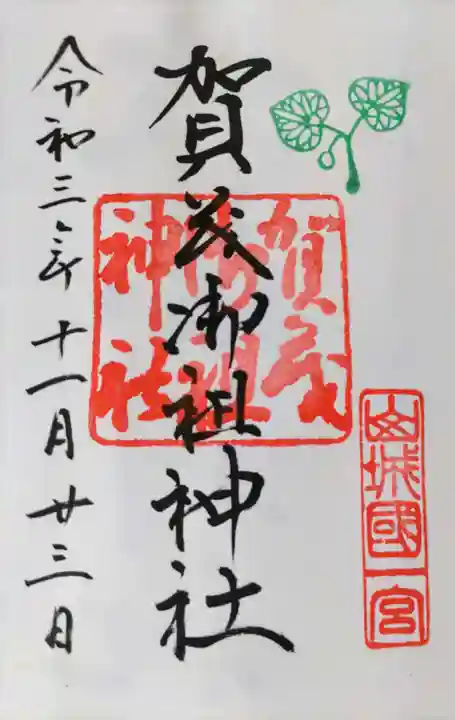 山城國一宮
賀茂御祖神社
賀茂
御祖
神社
令和三年十一月廿三日